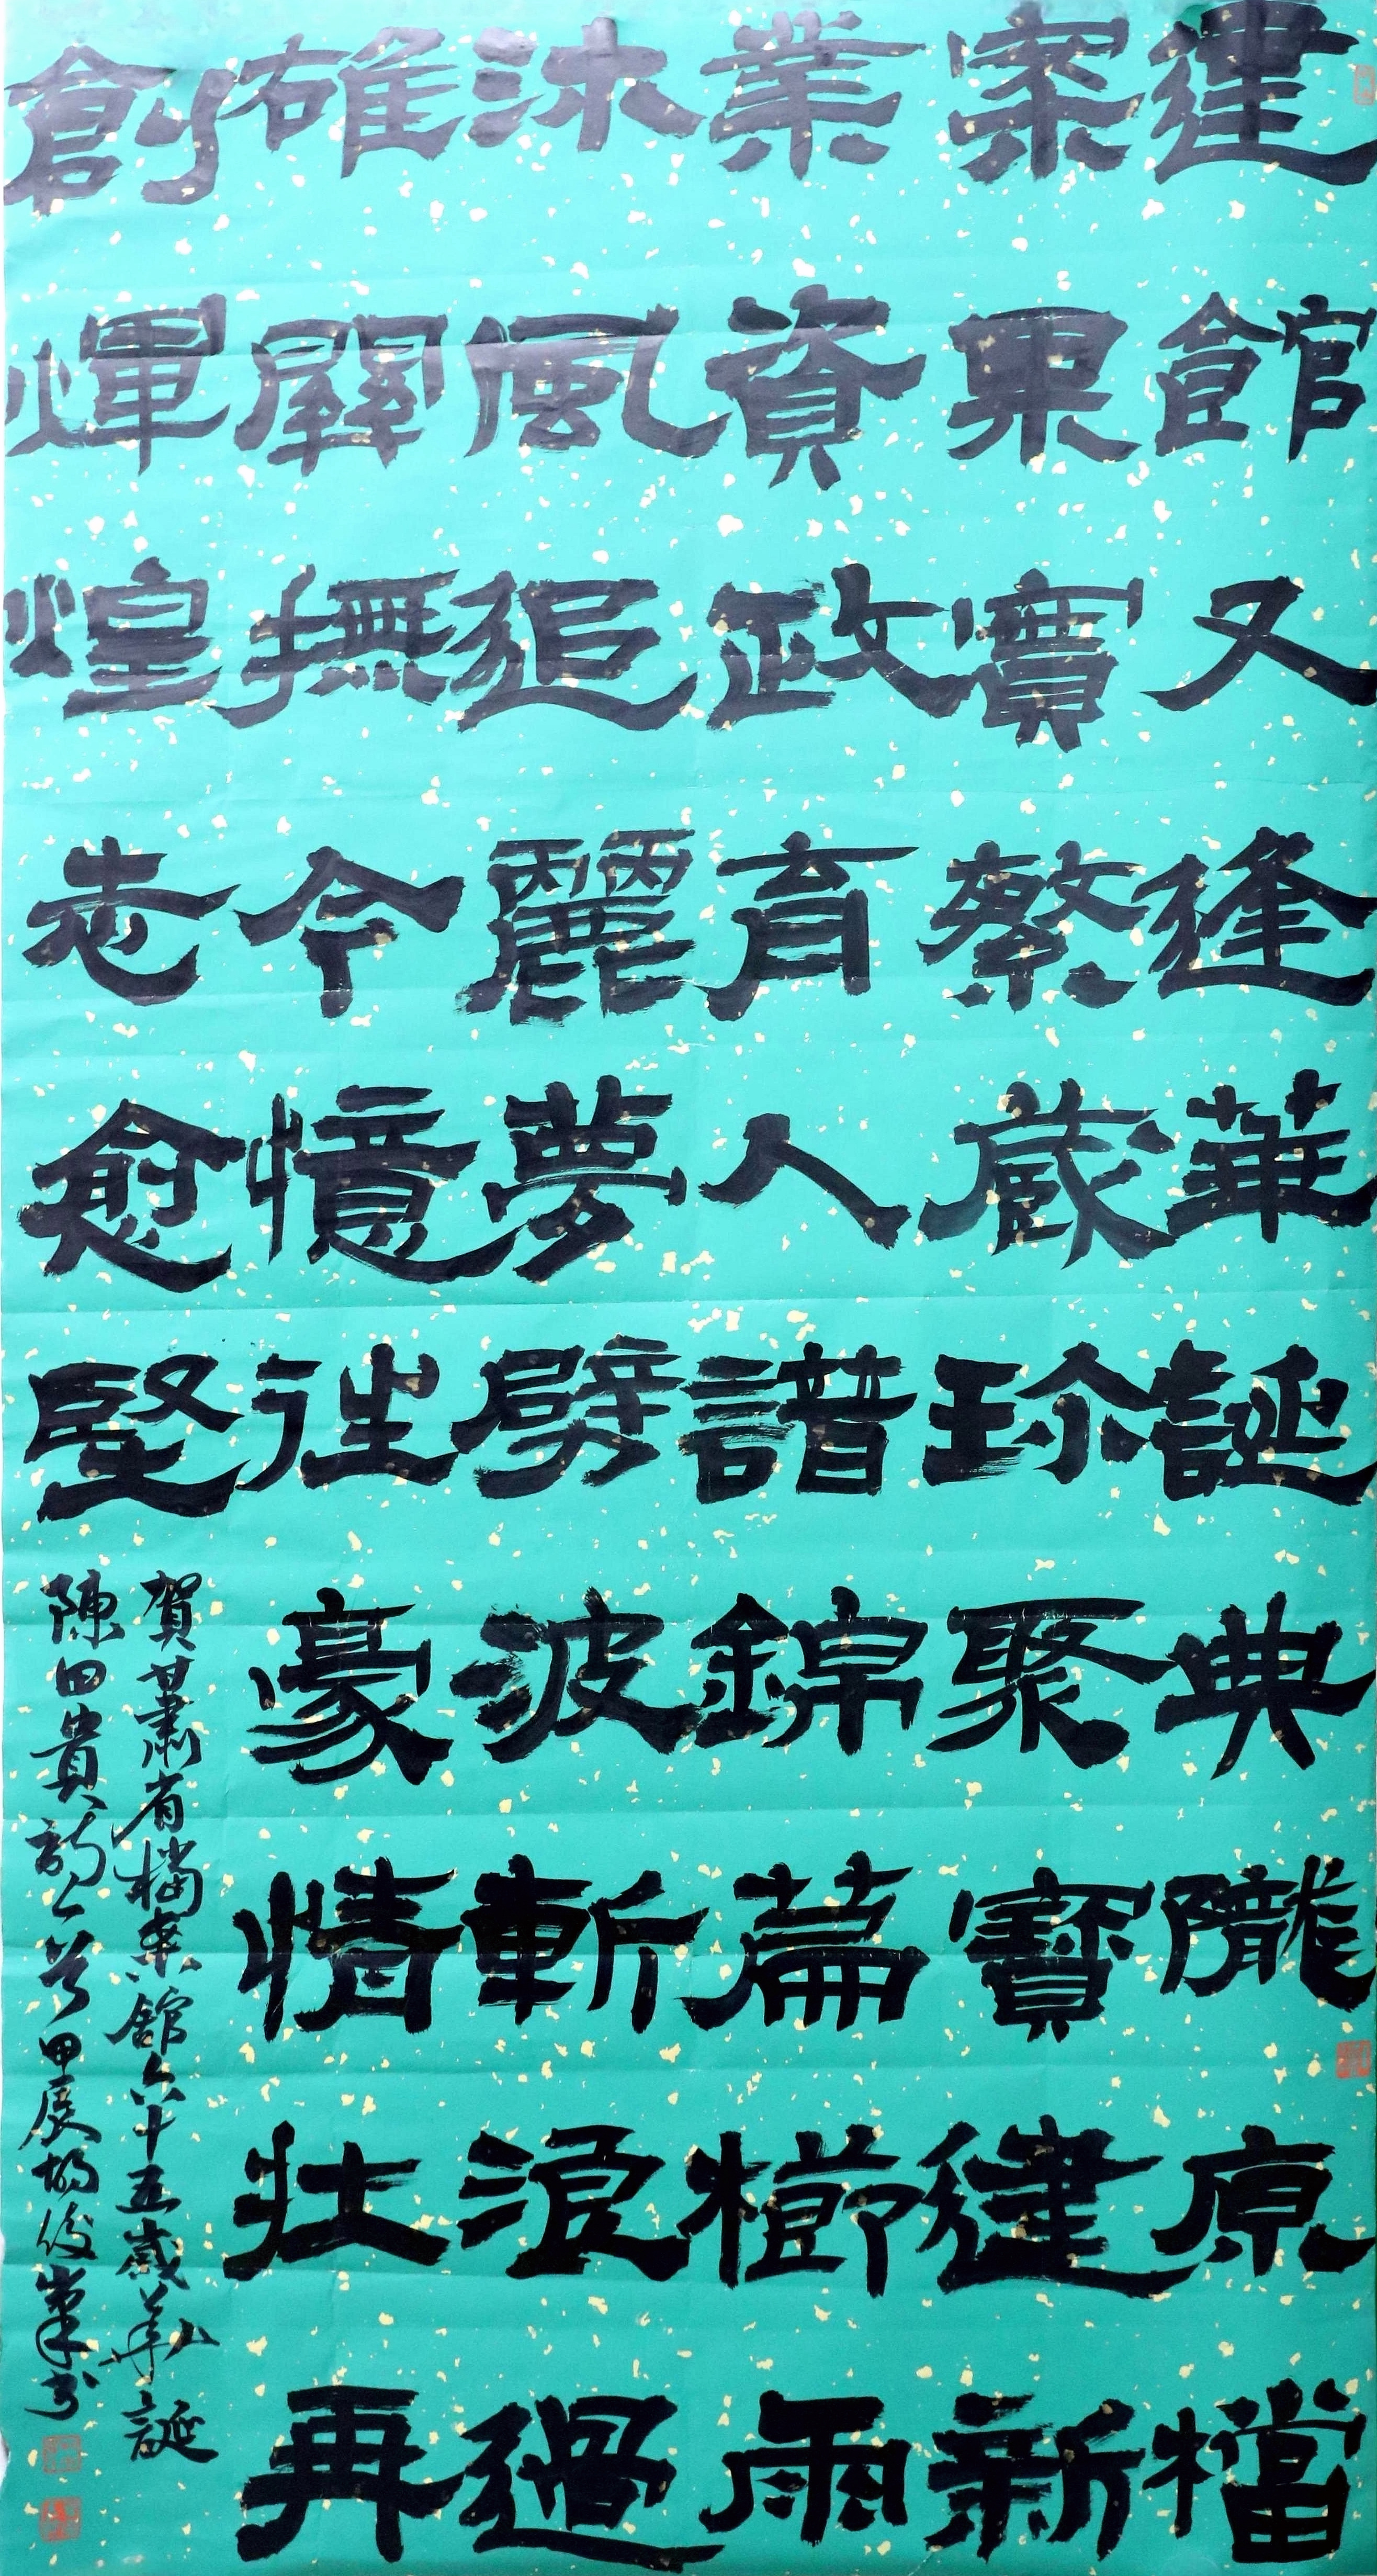 建館又逢華誕典隴原檔
案果實繁藏珍聚寶建新
業資政育人譜錦篇櫛雨
沐風追麗夢劈波斬浪過
雄關撫今憶往豪情壯再
創輝煌志愈堅
賀甘肅省檔案館六十五歲華誕
陳田貴 甲辰 俊 書